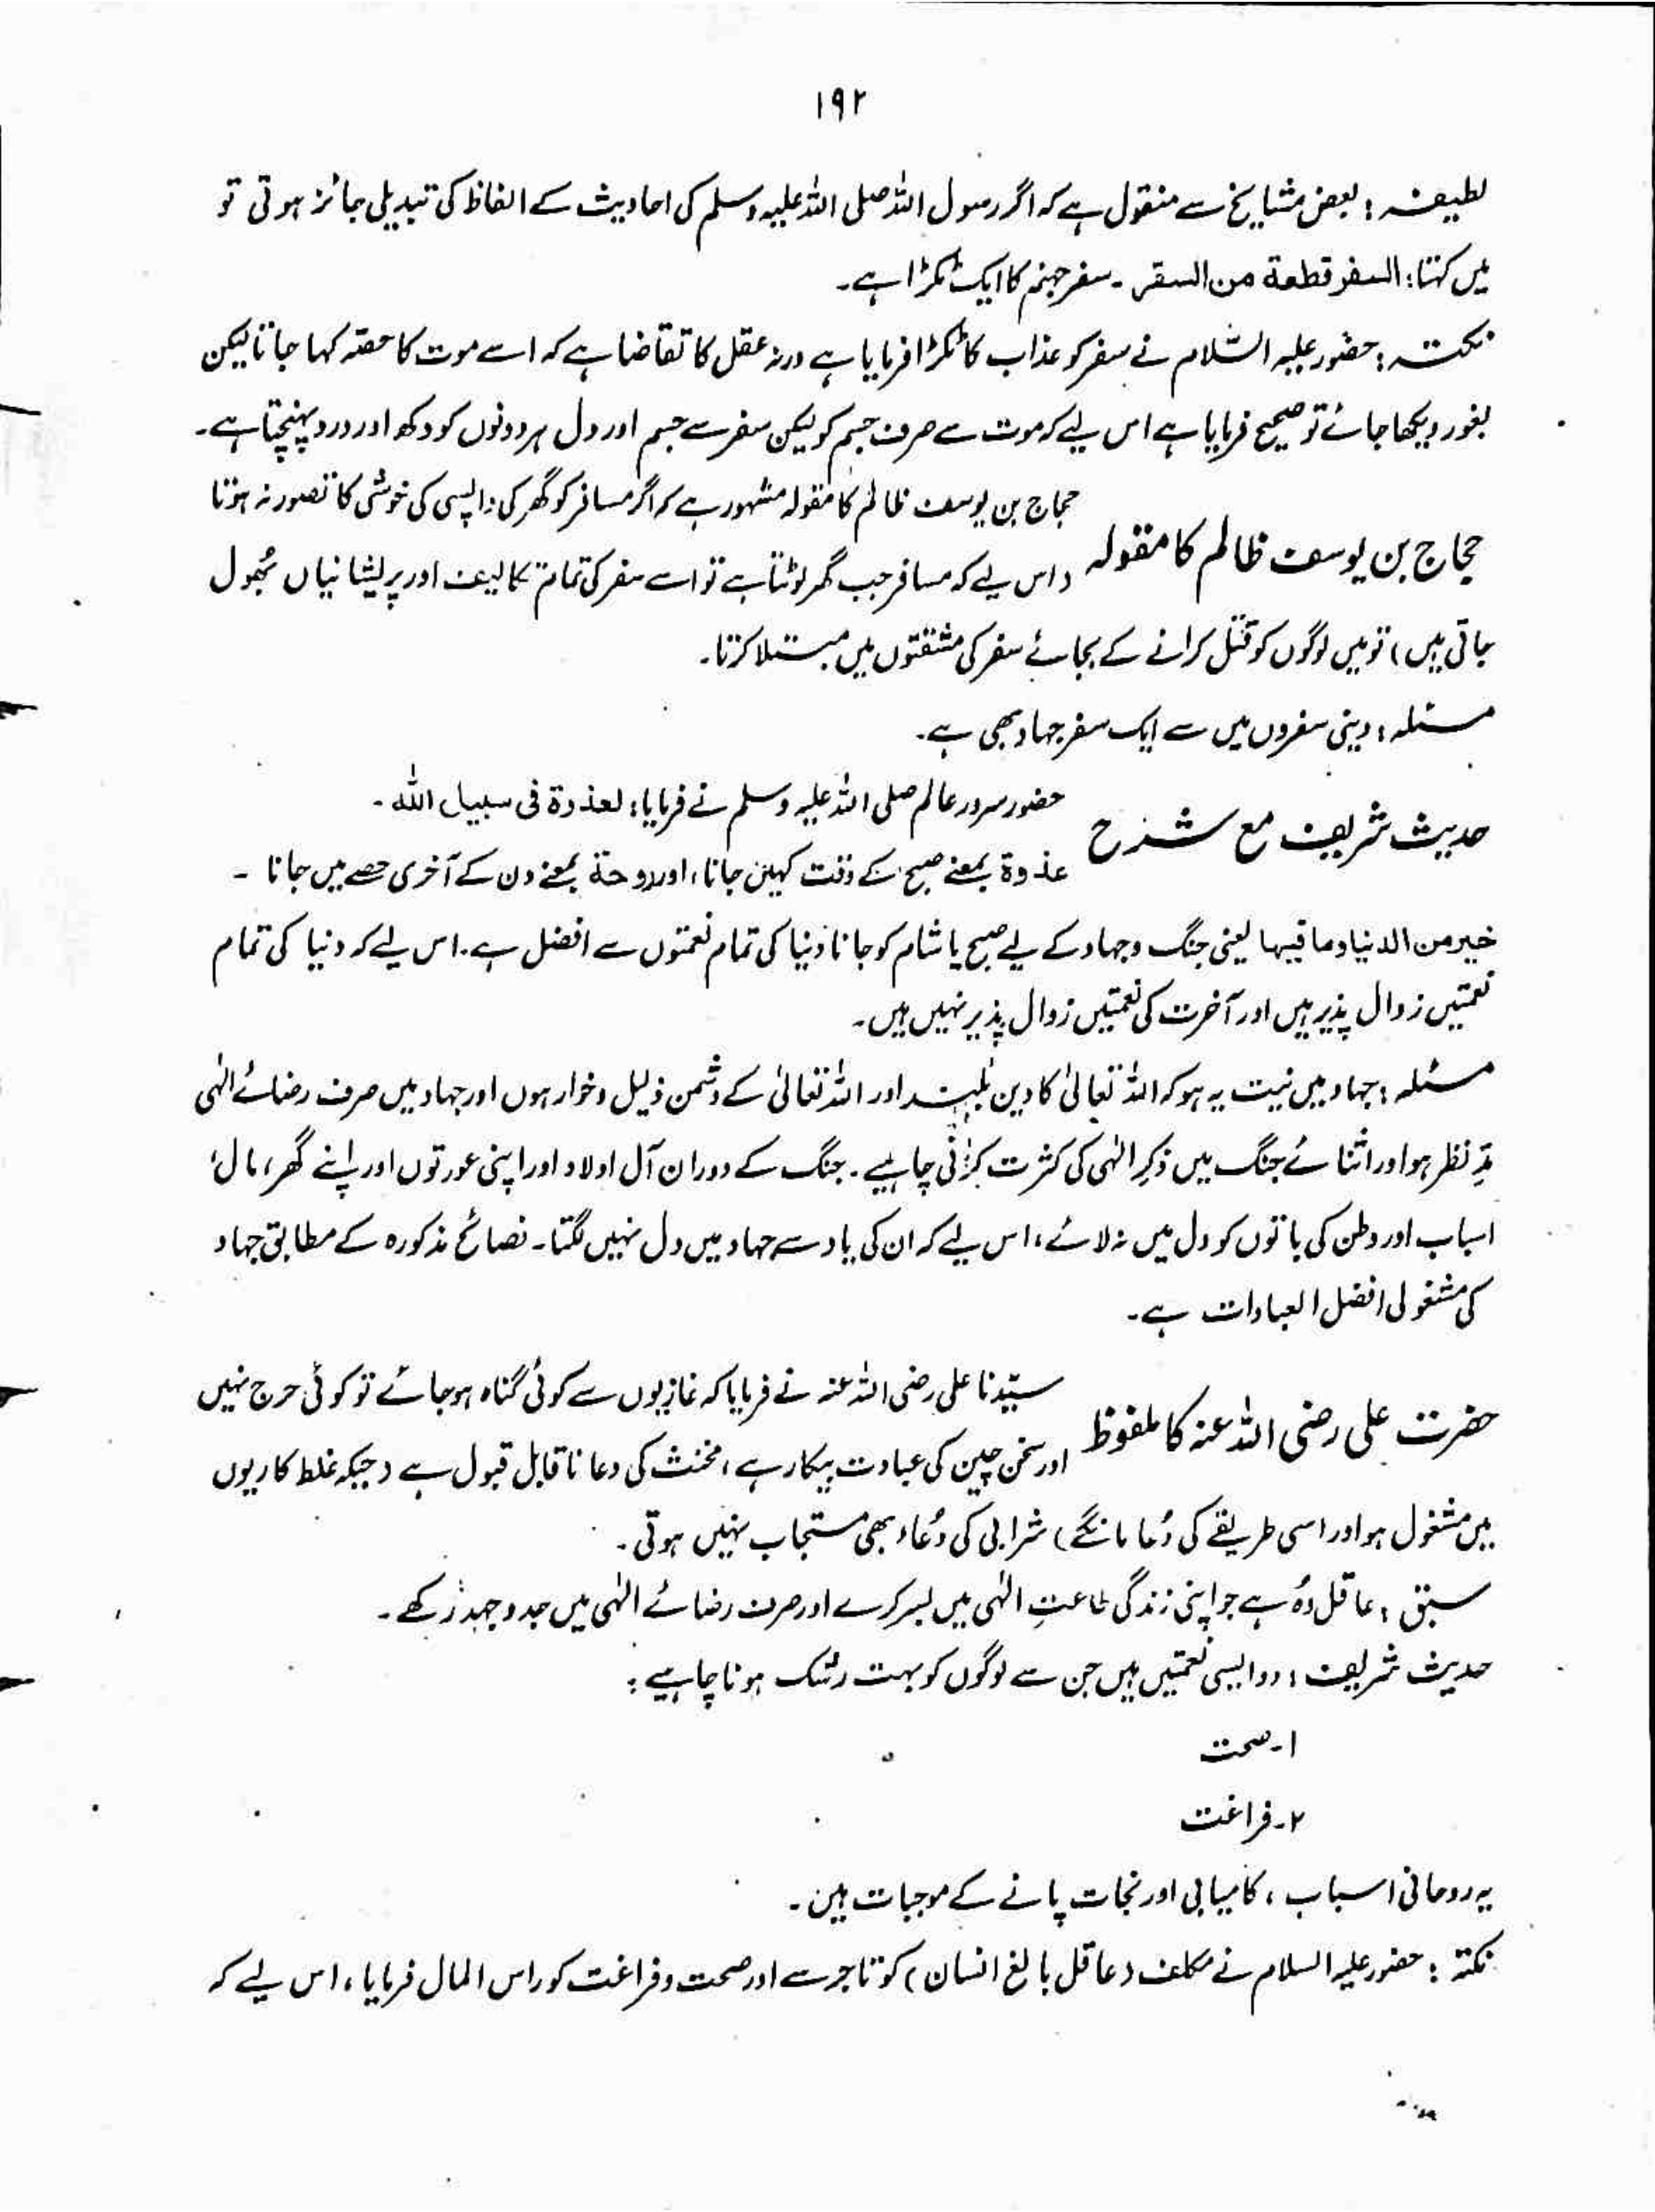 ۱۹۲
لطیفہ : بعض مشایخ سے منقول ہے کہ اگر رسول اللہ صلی اللہ علیہ وسلم کی احادیث کے الفاظ کی تبدیلی جائز ہوتی تو
میں کہتا : السفر قطعة من السقر ۔ سفر جہنم کا ایک ٹکڑا ہے۔
نکتہ : حضور علیہ السّلام نے سفر کو عذاب کا ٹکڑا فرمایا ہے ورنہ عقل کا تقاضا ہے کہ اسے موت کا حصّہ کہا جاتا لیکن
بغور دیکھا جائے تو صحیح فرمایا ہے اس لیے کہ موت سے صرف جسم کو لیکن سفر سے جسم اور دل ہر دونوں کو دکھ اور درد پہنچتا ہے۔
حجاج بن یوسف ظالم کا مقولہ
حجاج بن یوسف ظالم کا مقولہ مشہور ہے کہ اگر مسافر کو گھر کی واپسی کی خوشی کا تصور نہ ہوتا
(اس لیے کہ مسافر جب گھر لوٹتا ہے تو اسے سفر کی تمام تکالیف اور پریشانیاں بُھول
جاتی ہیں) تو میں لوگوں کو قتل کرانے کے بجائے سفر کی مشقتوں میں مبتلا کرتا۔
مسئلہ : دینی سفروں میں سے ایک سفر جہاد بھی ہے۔
حدیث شریف مع شرح
حضور سرور عالم صلی اللہ علیہ وسلم نے فرمایا : لعذدة فی سبیل اللہ ۔
عذوة بمعنے صبح کے وقت کہیں جانا ، اور روحة بمعنے دن کے آخری حصے میں جانا ۔
خیر من الدنیا وما فیہا یعنی جنگ و جہاد کے لیے صبح یا شام کو جانا دنیا کی تمام نعمتوں سے افضل ہے۔ اس لیے کہ دنیا کی تمام
نعمتیں زوال پذیر ہیں اور آخرت کی نعمتیں زوال پذیر نہیں ہیں۔
مسئلہ : جہاد میں نیت یہ ہو کہ اللہ تعالیٰ کا دین بلند اور اللہ تعالیٰ کے دشمن ذلیل و خوار ہوں اور جہاد میں صرف رضائے الٰہی
مدِّ نظر ہو اور اثنائے جنگ میں ذکرِ الٰہی کی کثرت کرنی چاہیے ۔ جنگ کے دوران آل اولاد اور اپنی عورتوں اور اپنے گھر ، مال ،
اسباب اور وطن کی باتوں کو دل میں نہ لائے ، اس لیے کہ ان کی یاد سے جہاد میں دل نہیں لگتا ۔ نصائح مذکورہ کے مطابق جہاد
کی مشغولی افضل العبادات ہے۔
حضرت علی رضی اللہ عنہ کا ملفوظ
سیّدنا علی رضی اللہ عنہ نے فرمایا کہ غازیوں سے کوئی گناہ ہو جائے تو کوئی حرج نہیں
اور سخن چین کی عبادت بیکار ہے ، مخنث کی دعا ناقابل قبول ہے (جبکہ غلط کاریوں
میں مشغول ہو اور اسی طریقے کی دُعا مانگے) شرابی کی دُعاء بھی مستجاب نہیں ہوتی ۔
سبق : عاقل وُہ ہے جو اپنی زندگی طاعتِ الٰہی میں بسر کرے اور صرف رضائے الٰہی میں جدوجہد رکھے ۔
حدیث شریف : دو ایسی نعمتیں ہیں جن سے لوگوں کو بہت رشک ہونا چاہیے :
۱۔ صحت
۲۔ فراغت
یہ روحانی اسباب ، کامیابی اور نجات پانے کے موجبات ہیں ۔
نکتہ : حضور علیہ السلام نے مکلف (عاقل بالغ انسان) کو تاجر سے اور صحت و فراغت کو راس المال فرمایا ، اس لیے کہ